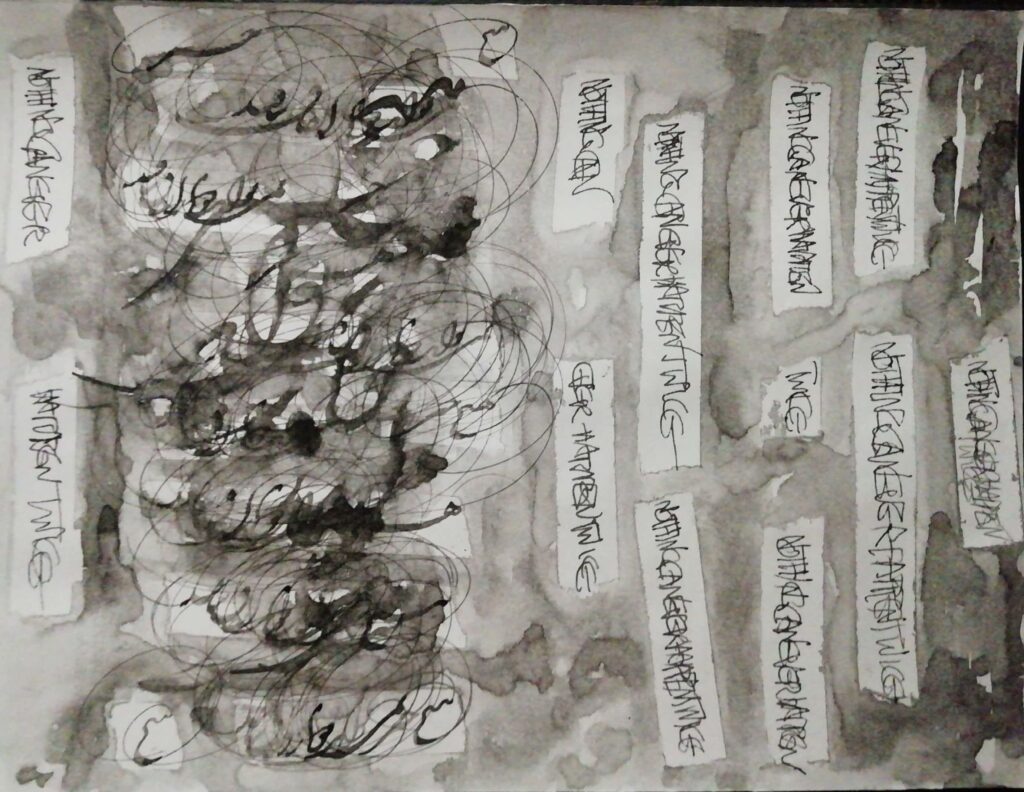 NOTHING CAN EVER HAPPEN
TWICE
NOTHING CAN EVER HAPPEN TWICE
NOTHING CAN EVER HAPPEN TWICE
NOTHING CAN EVER HAPPEN
TWICE
NOTHING CAN EVER HAPPEN
NOTHING CAN EVER HAPPEN TWICE
NOTHING CAN EVER HAPPEN TWICE
NOTHING CAN
EVER HAPPEN TWICE
NOTHING CAN EVER
HAPPEN TWICE